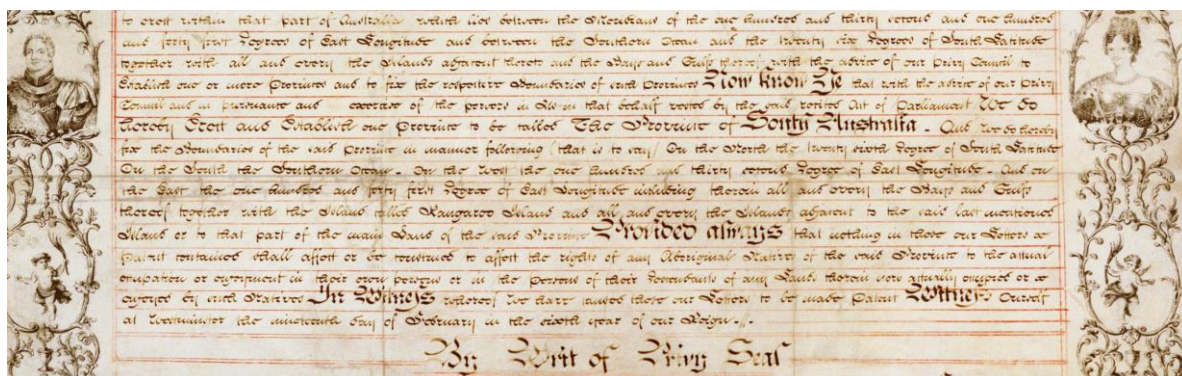 to erect within that part of Australia which lies between the Meridians of the one hundred and thirty second and one hundred
and forty first Degrees of East Longitude and between the Southern Ocean and the twenty six Degrees of South Latitude
together with all and every the Islands adjacent thereto and the Bays and Gulfs thereof with the advice of our Privy Council to
Establish one or more Provinces and to fix the respective Boundaries of such Provinces Now Know Ye that with the advice of our Privy
Council and in pursuance and exercise of the powers in us in that behalf vested by the said recited Act of Parliament We do
hereby Erect and Establish one Province to be called The Province of South Australia. And We do hereby
fix the Boundaries of the said Province in manner following (that is to say) On the North the twenty sixth Degree of South Latitude
On the South the Southern Ocean - On the West the one hundred and thirty second Degree of East Longitude - And on
the East the one hundred and forty first Degree of East Longitude including therein all and every the Bays and Gulfs
thereof together with the Island called Kangaroo Island and all and every the Islands adjacent to the said last mentioned
Island or to that part of the main Land of the said Province Provided always that nothing in these our Letters
Patent contained shall affect or be construed to affect the rights of any Aboriginal Natives of the said Province to the actual
occupation or enjoyment in their own persons or in the persons of their Descendants of any Lands therein now actually occupied or
enjoyed by such Natives In Witness whereof We have caused these our Letters to be made Patent Witness Ourself
at Westminster the nineteenth day of February in the sixth year of our Reign
By Writ of Privy Seal